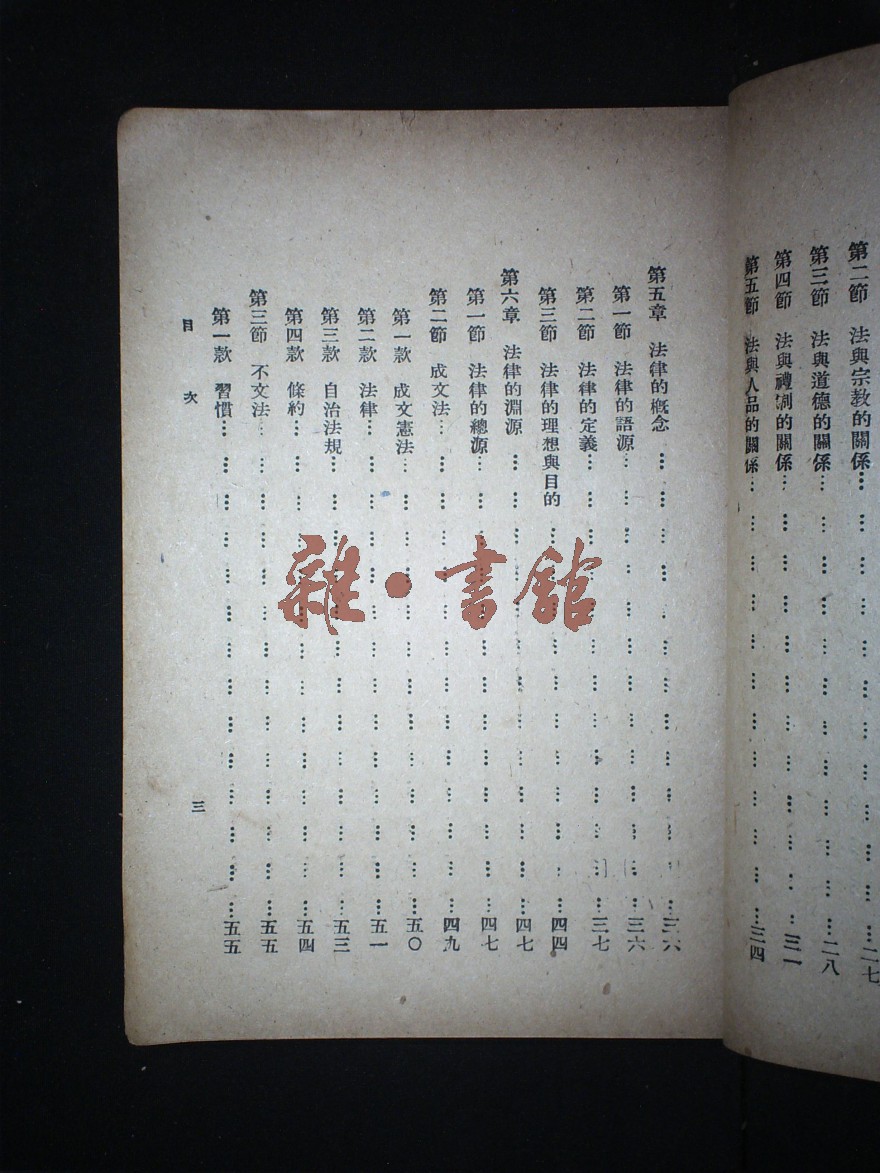 第二節　法與宗教的關係……二七
第三節　法與道德的關係……二八
第四節　法與禮制的關係……三一
第五節　法與人品的關係……三四
第五章　法律的概念……三六
第一節　法律的語源……三六
第二節　法律的定義……三七
第三節　法律的理想與目的……四四
第六章　法律的淵源……四七
第一節　法律的總源……四七
第二節　成文法……四九
第一款　成文憲法……五〇
第二款　法律……五一
第三款　自治法規……五三
第四款　條約……五四
第三節　不文法……五五
第一款　習慣……五五
目次　三
雜·書館